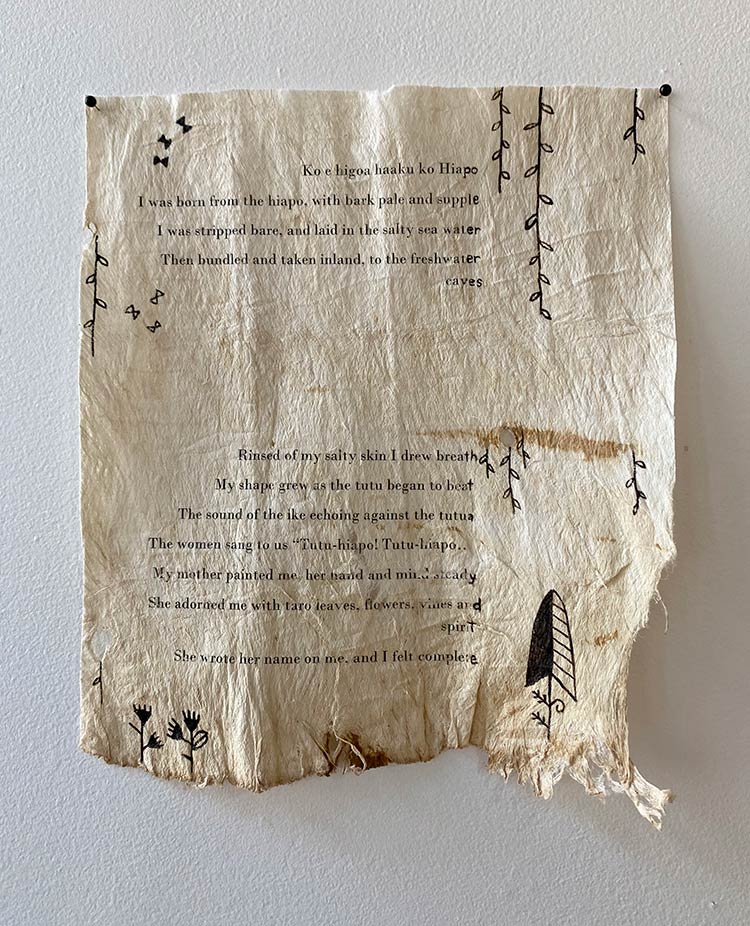 Ko e higoa haaku ko Hiapo
I was born from the hiapo, with bark pale and supple
I was stripped bare, and laid in the salty sea water
Then bundled and taken inland, to the freshwater
caves
Rinsed of my salty skin I drew breath
My shape grew as the tutu began to beat
The sound of the ike echoing against the tutua
The women sang to us “Tutu-hiapo! Tutu-hiapo..
My mother painted me, her hand and mind steady
She adorned me with taro leaves, flowers, vines and
spirit
She wrote her name on me, and I felt complete